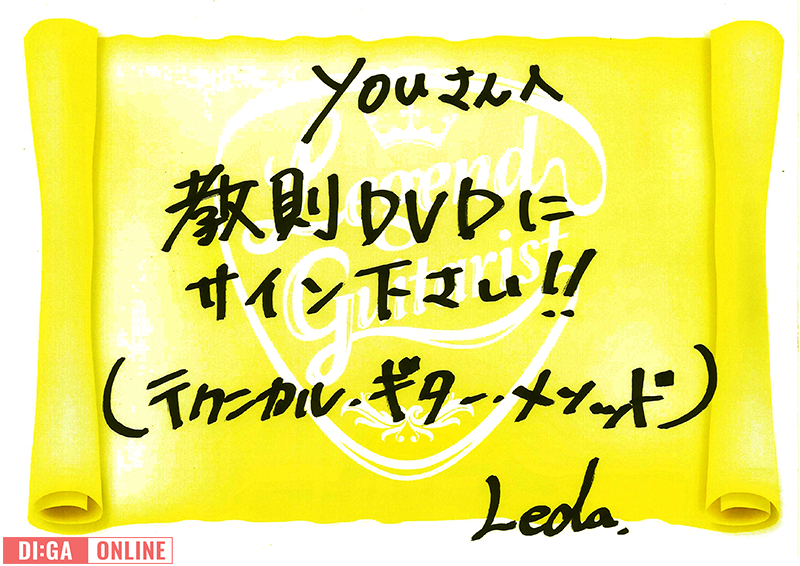 youさんへ
Legend
教則DVDに
Guitarist
サイン下さい!!
(テクニカル・ギター・メソッド)
Leda.
DI:GA ONLINE